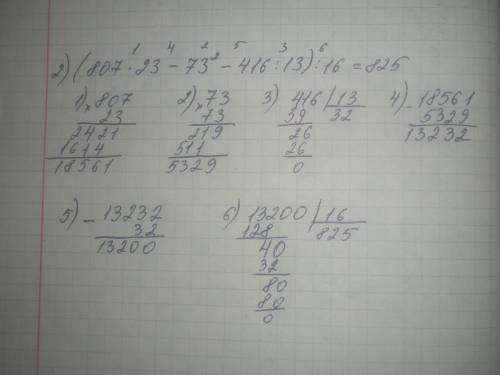 1 4 2 5 3 6
2) (807 · 23 − 73² − 416 : 13) : 16 = 825
1) × 807 2) × 73 3) 416 | 13 4) − 18561
23 73 39 32 5329
2421 219 26 13232
1614 511 26
18561 5329 0
5) − 13232 6) 13200 | 16
32 128 825
13200 40
32
80
80
0